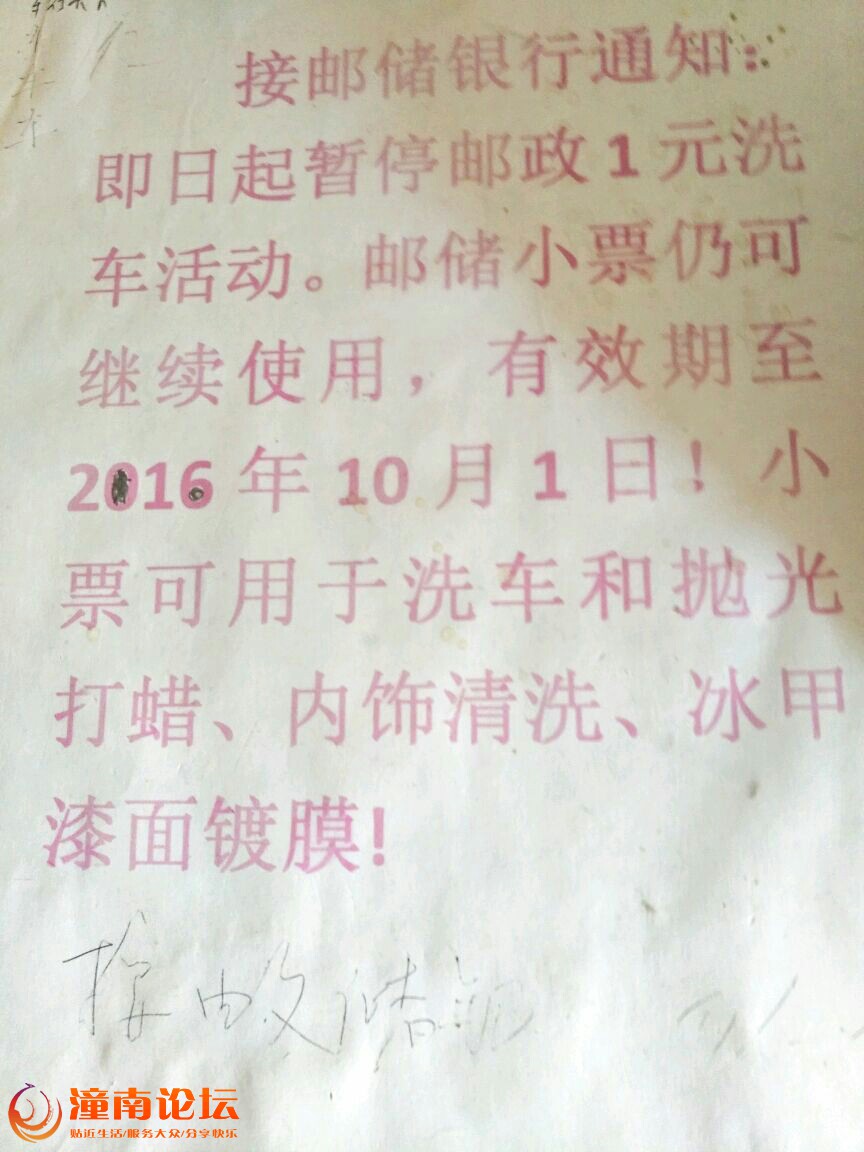 接邮储银行通知：
即日起暂停邮政1元洗
车活动。邮储小票仍可
继续使用，有效期至
2016年10月1日！小
票可用于洗车和抛光
打蜡、内饰清洗、冰甲
漆面镀膜!
接
潼南论坛
贴近生活/服务大众/分享快乐